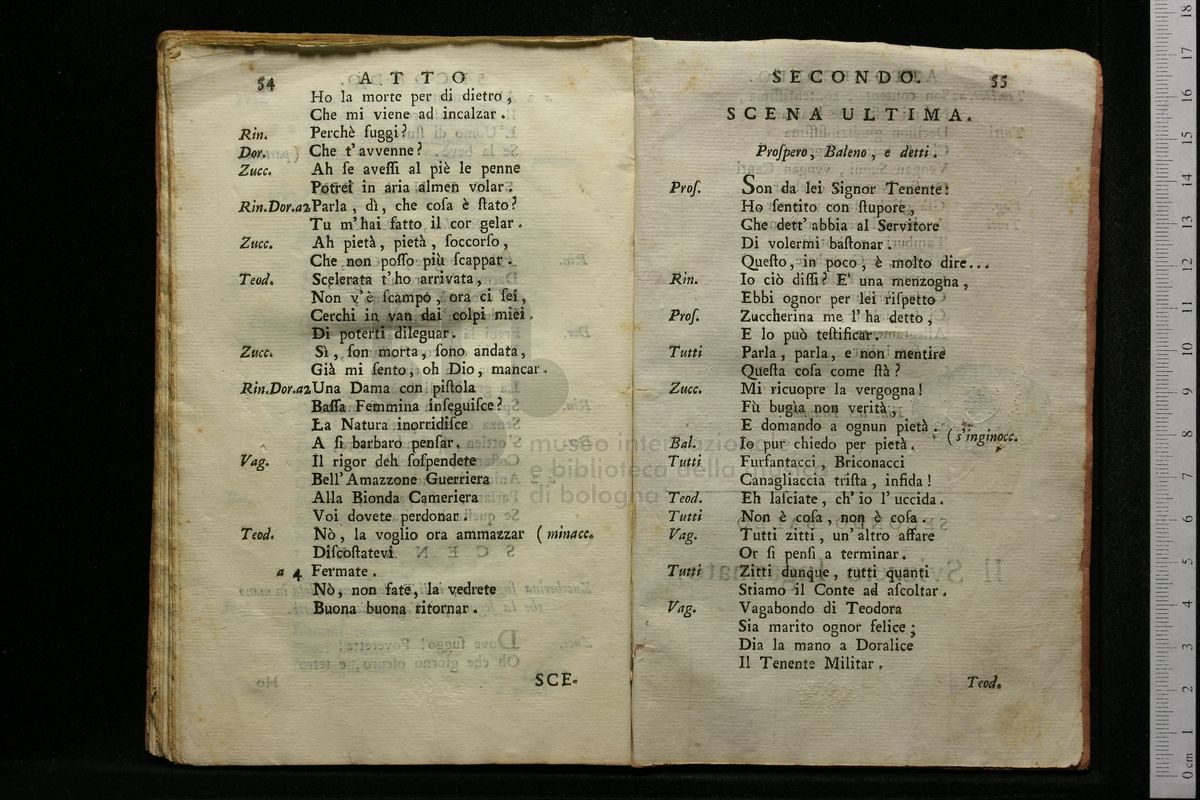 54
ATTO
Ho la morte per di dietro,
Che mi viene ad incalzar.
Rin. Perchè fuggi?
Dor. Che t'avvenne?
Zucc. Ah ſe aveſſi al piè le penne
Potrei in aria almen volar.
Rin.Dor.a2 Parla, dì, che coſa è ſtato?
Tu m'hai fatto il cor gelar.
Zucc. Ah pietà, pietà, ſoccorſo,
Che non poſſo più ſcappar.
Teod. Scelerata t'ho arrivata,
Non v'è ſcampo, ora ci ſei,
Cerchi in van dai colpi miei
Di poterti dileguar.
Zucc. Sì, ſon morta, ſono andata,
Già mi ſento, oh Dio, mancar.
Rin.Dor.a2 Una Dama con piſtola
Baſſa Femmina inſeguiſce?
La Natura inorridiſce
A ſi barbaro penſar.
Vag. Il rigor deh ſoſpendete
Bell'Amazzone Guerriera
Alla Bionda Cameriera
Voi dovete perdonar.
Teod. Nò, la voglio ora ammazzar (minacc.
Diſcoſtatevi
a 4 Fermate.
Nò, non fate, la vedrete
Buona buona ritornar.
SCE-
SECONDO. 55
SCENA ULTIMA.
Proſpero, Baleno, e detti.
Proſ. Son da lei Signor Tenente:
Ho ſentito con ſtupore,
Che dett'abbia al Servitore
Di volermi baſtonar.
Queſto, in poco, è molto dire...
Rin. Io ciò diſſi? E' una menzogna,
Ebbi ognor per lei riſpetto
Proſ. Zuccherina me l'ha detto,
E lo può teſtificar.
Tutti Parla, parla, e non mentire
Queſta coſa come ſtà?
Zucc. Mi ricuopre la vergogna!
Fù bugìa non verità,
E domando a ognun pietà. (s'inginocc.
Bal. Io pur chiedo per pietà.
Tutti Furfantacci, Briconacci
Canagliaccia triſta, infida!
Teod. Eh laſciate, ch'io l'uccida.
Tutti Non è coſa, non è coſa.
Vag. Tutti zitti, un'altro affare
Or ſi penſi a terminar.
Tutti Zitti dunque, tutti quanti
Stiamo il Conte ad aſcoltar.
Vag. Vagabondo di Teodora
Sia marito ognor felice;
Dia la mano a Doralice
Il Tenente Militar.
Teod.
museo internazionale
e biblioteca della musica
di bologna